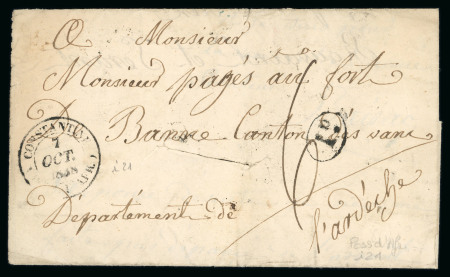 A Monsieur
Monsieur pagés au fort
A Banne Canton des vans
Département de
l'ardèche
CONSTANTINE
7
OCT.
1838